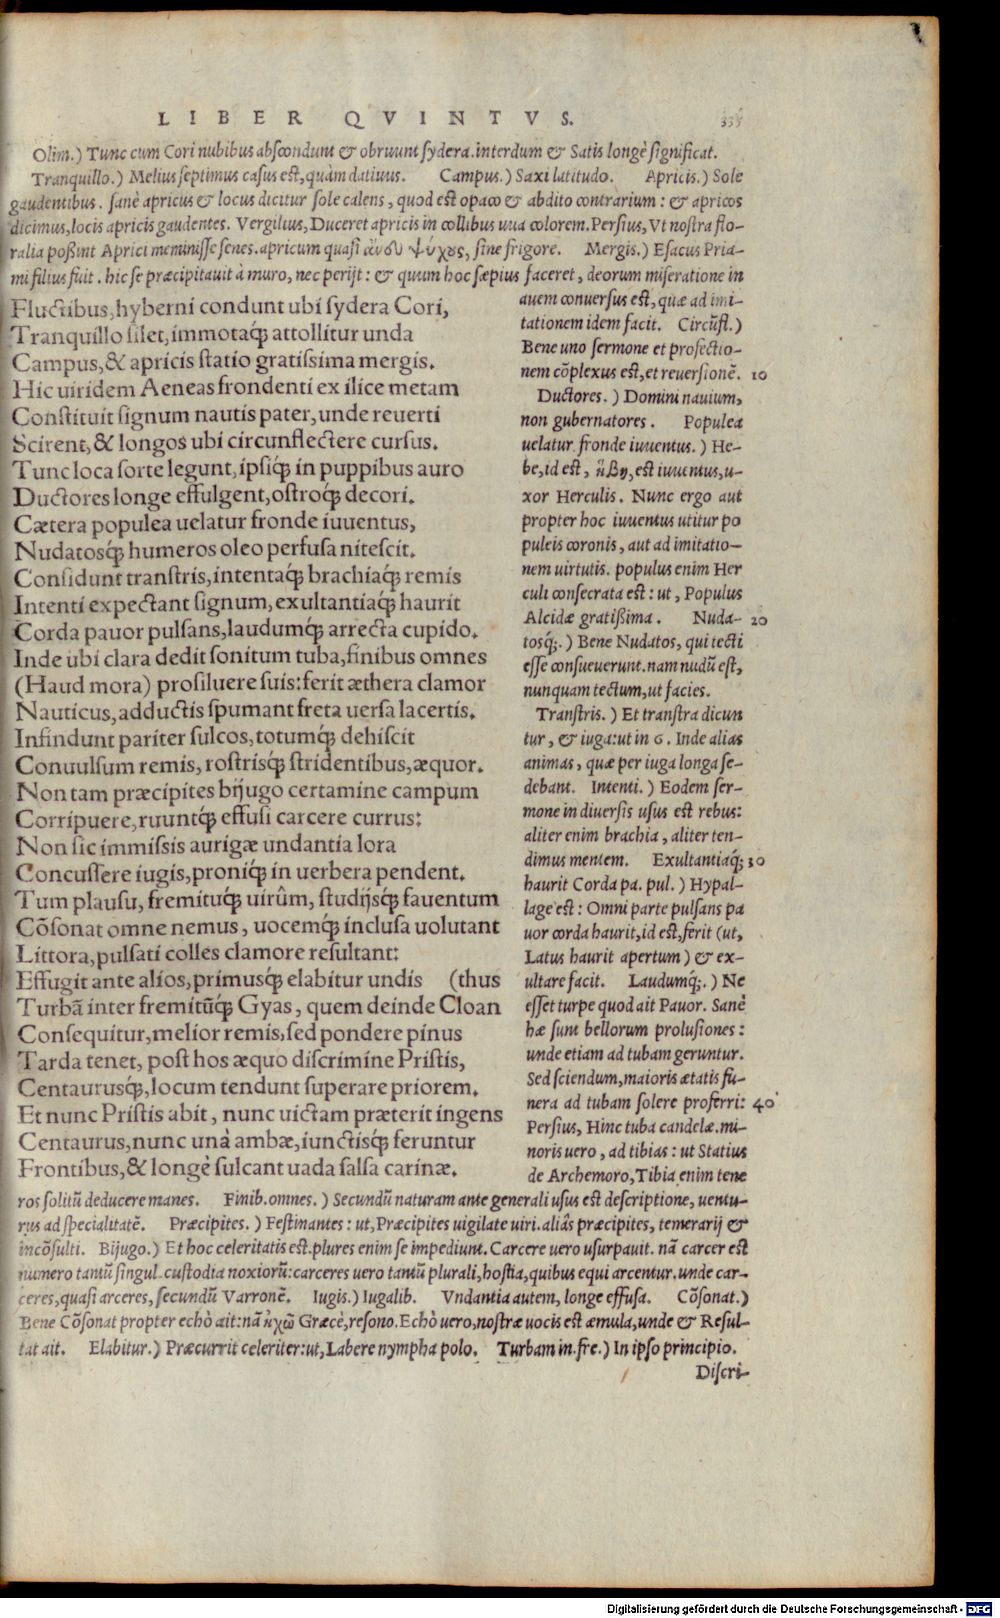 LIBER QVINTVS. 335
Olim.) Tunc cum Cori nubibus abscondunt & obruunt sydera. interdum & Satis longè significat.
Tranquillo.) Melius septimus casus est, quàm datiuus. Campus.) Saxi latitudo. Apricis.) Sole
gaudentibus. sanè apricus & locus dicitur sole calens, quod est opaco & abdito contrarium: & apricos
dicimus, locis apricis gaudentes. Vergilius, Duceret apricis in collibus uua colorem. Persius, Vt nostra flo-
ralia poßint Aprici meminisse senes. apricum quasi ἄνευ ψύχους, sine frigore. Mergis.) Esacus Pria-
mi filius fuit. hic se præcipitauit à muro, nec perijt: & quum hoc sæpius faceret, deorum miseratione in
Fluctibus, hyberni condunt ubi sydera Cori,
Tranquillo silet, immotaq́; attollitur unda
Campus, & apricis statio gratissima mergis.
Hic uiridem Aeneas frondenti ex ilice metam
Constituit signum nautis pater, unde reuerti
Scirent, & longos ubi circunflectere cursus.
Tunc loca sorte legunt, ipsiq́; in puppibus auro
Ductores longe effulgent, ostroq́; decori.
Cætera populea uelatur fronde iuuentus,
Nudatosq́; humeros oleo perfusa nitescit.
Considunt transtris, intentaq́; brachiaq́; remis
Intenti expectant signum, exultantiaq́; haurit
Corda pauor pulsans, laudumq́; arrecta cupido.
Inde ubi clara dedit sonitum tuba, finibus omnes
(Haud mora) prosiluere suis: ferit æthera clamor
Nauticus, adductis spumant freta uersa lacertis.
Infindunt pariter sulcos, totumq́; dehiscit
Conuulsum remis, rostrisq́; stridentibus, æquor.
Non tam præcipites bijugo certamine campum
Corripuere, ruuntq́; effusi carcere currus:
Non sic immissis aurigæ undantia lora
Concussere iugis, proniq́; in uerbera pendent.
Tum plausu, fremituq́; uirûm, studijsq́; fauentum
Cõsonat omne nemus, uocemq́; inclusa uolutant
Littora, pulsati colles clamore resultant:
Effugit ante alios, primusq́; elabitur undis (thus
Turbã inter fremitũq́; Gyas, quem deinde Cloan
Consequitur, melior remis, sed pondere pinus
Tarda tenet, post hos æquo discrimine Pristis,
Centaurusq́;, locum tendunt superare priorem.
Et nunc Pristis abit, nunc uictam præterit ingens
Centaurus, nunc unà ambæ, iunctisq́; feruntur
Frontibus, & longè sulcant uada salsa carinæ.
auem conuersus est, quæ ad imi-
tationem idem facit. Circũfl.)
Bene uno sermone et profectio-
nem cõplexus est, et reuersionẽ. 10
Ductores.) Domini nauium,
non gubernatores. Populea
uelatur fronde iuuentus.) He-
be, id est, ἥβη, est iuuentus, u-
xor Herculis. Nunc ergo aut
propter hoc iuuentus utitur po
puleis coronis, aut ad imitatio-
nem uirtutis. populus enim Her
culi consecrata est: ut, Populus
Alcidæ gratißima. Nuda- 20
tosq́;.) Bene Nudatos, qui tecti
esse consueuerunt. nam nudũ est,
nunquam tectum, ut facies.
Transtris.) Et transtra dicun
tur, & iuga: ut in 6. Inde alias
animas, quæ per iuga longa se-
debant. Intenti.) Eodem ser-
mone in diuersis usus est rebus:
aliter enim brachia, aliter ten-
dimus mentem. Exultantiaq́; 30
haurit Corda pa. pul.) Hypal-
lage est: Omni parte pulsans pa
uor corda haurit, id est, ferit (ut,
Latus haurit apertum) & ex-
ultare facit. Laudumq́;.) Ne
esset turpe quod ait Pauor. Sanè
hæ sunt bellorum prolusiones:
unde etiam ad tubam geruntur.
Sed sciendum, maioris ætatis fu-
nera ad tubam solere proferri: 40
Persius, Hinc tuba candelæ. mi-
noris uero, ad tibias: ut Statius
de Archemoro, Tibia enim tene
ros solitũ deducere manes. Finib. omnes.) Secundũ naturam ante generali usus est descriptione, uentu-
rus ad specialitatẽ. Præcipites.) Festinantes: ut, Præcipites uigilate uiri. aliâs præcipites, temerarij &
incõsulti. Bijugo.) Et hoc celeritatis est. plures enim se impediunt. Carcere uero usurpauit. nã carcer est
numero tantũ singul. custodia noxiorũ: carceres uero tantũ plurali, hostia, quibus equi arcentur. unde car-
ceres, quasi arceres, secundũ Varronẽ. Iugis.) Iugalib. Vndantia autem, longe effusa. Cõsonat.)
Bene Cõsonat propter echò ait: nã ἠχῶ Græcè, resono. Echò uero, nostræ uocis est æmula, unde & Resul-
tat ait. Elabitur.) Præcurrit celeriter: ut, Labere nympha polo. Turbam in. fre.) In ipso principio.
Discri-
Digitalisierung gefördert durch die Deutsche Forschungsgemeinschaft - DFG